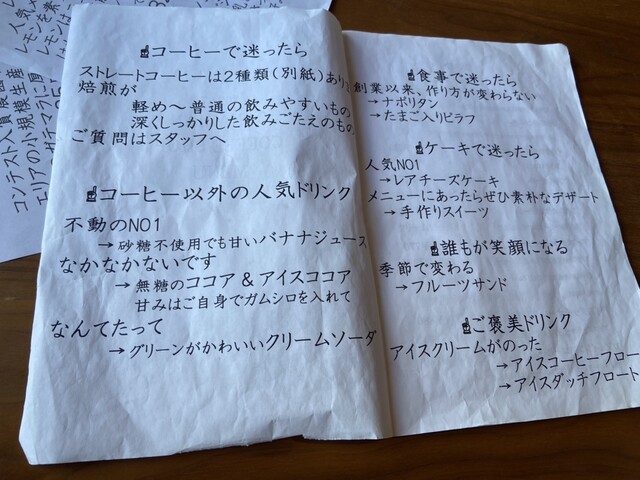 ☝コーヒーで迷ったら
ストレートコーヒーは2種類(別紙)あり
焙煎が
軽め〜普通の飲みやすいもの
深くしっかりした飲みごたえのもの
ご質問はスタッフへ
☝コーヒー以外の人気ドリンク
不動のNO1
→砂糖不使用でも甘いバナナジュース
なかなかないです
→無糖のココア & アイスココア
甘みはご自身でガムシロを入れて
なんてたって
→グリーンがかわいいクリームソーダ
☝食事で迷ったら
創業以来、作り方が変わらない
→ナポリタン
→たまご入りピラフ
☝ケーキで迷ったら
人気NO1
→レアチーズケーキ
メニューにあったらぜひ素朴なデザート
→手作りスイーツ
☝誰もが笑顔になる
季節で変わる
→フルーツサンド
☝ご褒美ドリンク
アイスクリームがのった
→アイスコーヒーフロー
→アイスダッチフロート
コンテスト入賞
エリアの小規模生産